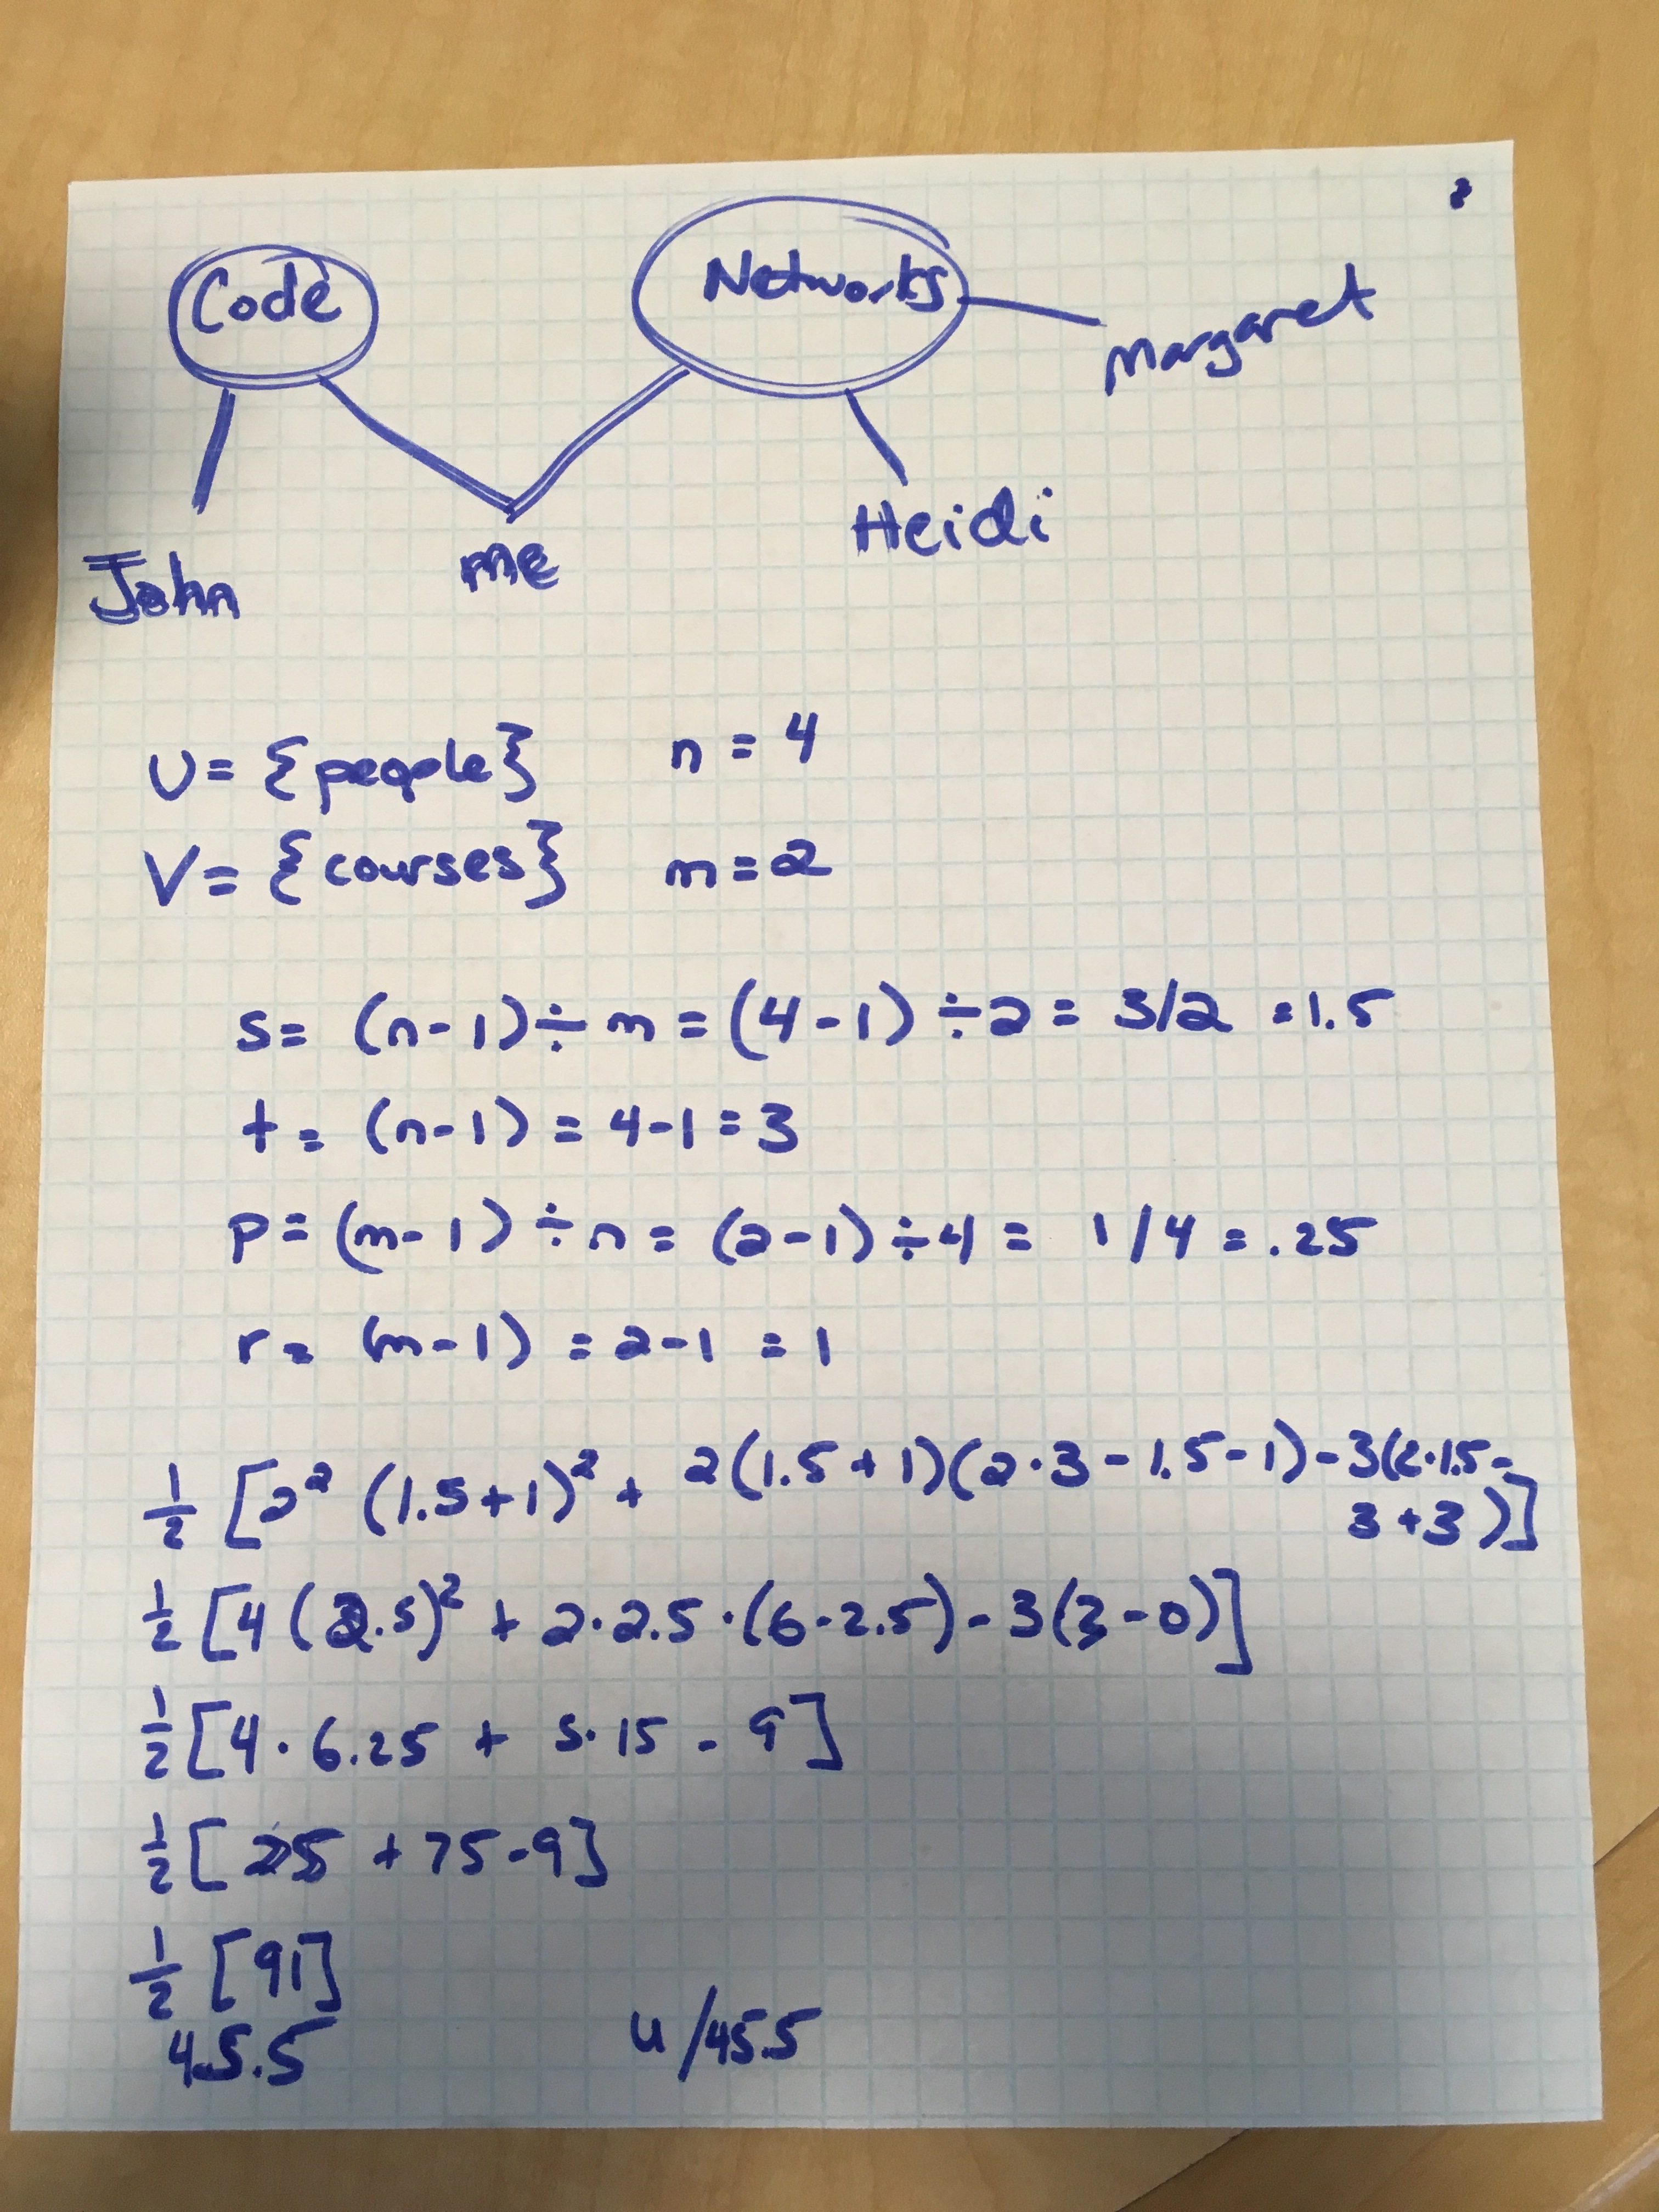 Code
Networks
Margaret
John
me
Heidi
U = {people} n = 4
V = {courses} m = 2
s = (n-1) ÷ m = (4-1) ÷ 2 = 3/2 = 1.5
t = (n-1) = 4-1 = 3
p = (m-1) ÷ n = (2-1) ÷ 4 = 1/4 = .25
r = (m-1) = 2-1 = 1
1/2 [2² (1.5+1)² + 2(1.5+1)(2·3-1.5-1)-3(2·1.5-
3+3)]
1/2 [4(2.5)² + 2·2.5·(6-2.5)-3(3-0)]
1/2 [4·6.25 + 5·15 - 9]
1/2 [25 + 75-9]
1/2 [91]
45.5 u/45.5